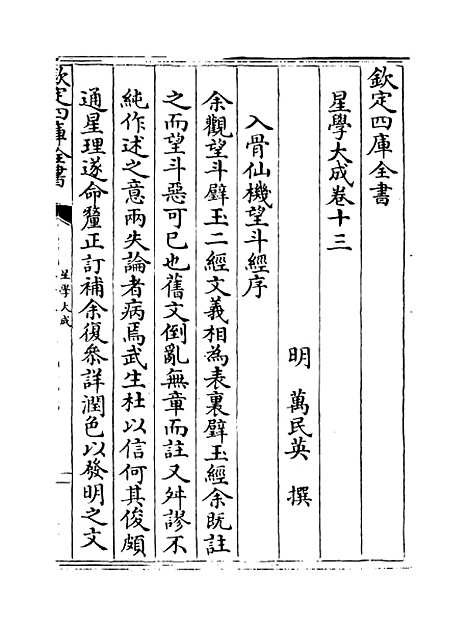 欽定四庫全書
星學大成卷十三
明 萬民英 撰
入骨仙機望斗經序
余觀望斗璧玉二經文義相為表裏璧玉經余既註
之而望斗惡可已也舊文倒亂無章而註又舛謬不
純作述之意兩失論者病焉武生杜以信何其俊頗
通星理遂命釐正訂補余復叅詳潤色以發明之文
欽定四庫全書
星學大成